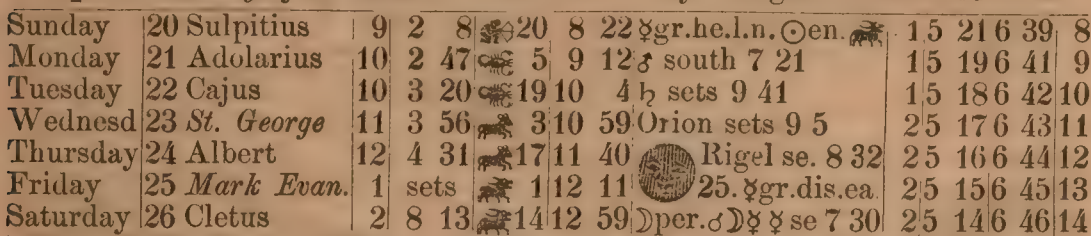 Sunday 20 Sulpitius 9 2 8 20 8 22 ☿gr.he.l.n. ☉en. 1 5 21 6 39 8
Monday 21 Adolarius 10 2 47 5 9 12 ♂ south 7 21 1 5 19 6 41 9
Tuesday 22 Cajus 10 3 20 19 10 4 ♄ sets 9 41 1 5 18 6 42 10
Wednesd 23 St. George 11 3 56 3 10 59 Orion sets 9 5 2 5 17 6 43 11
Thursday 24 Albert 12 4 31 17 11 40 Rigel se. 8 32 2 5 16 6 44 12
Friday 25 Mark Evan. 1 sets 1 12 11 25. ☿gr.dis.ea. 2 5 15 6 45 13
Saturday 26 Cletus 2 8 13 14 12 59 ☽per.☌☽☿ ☿ se 7 30 2 5 14 6 46 14